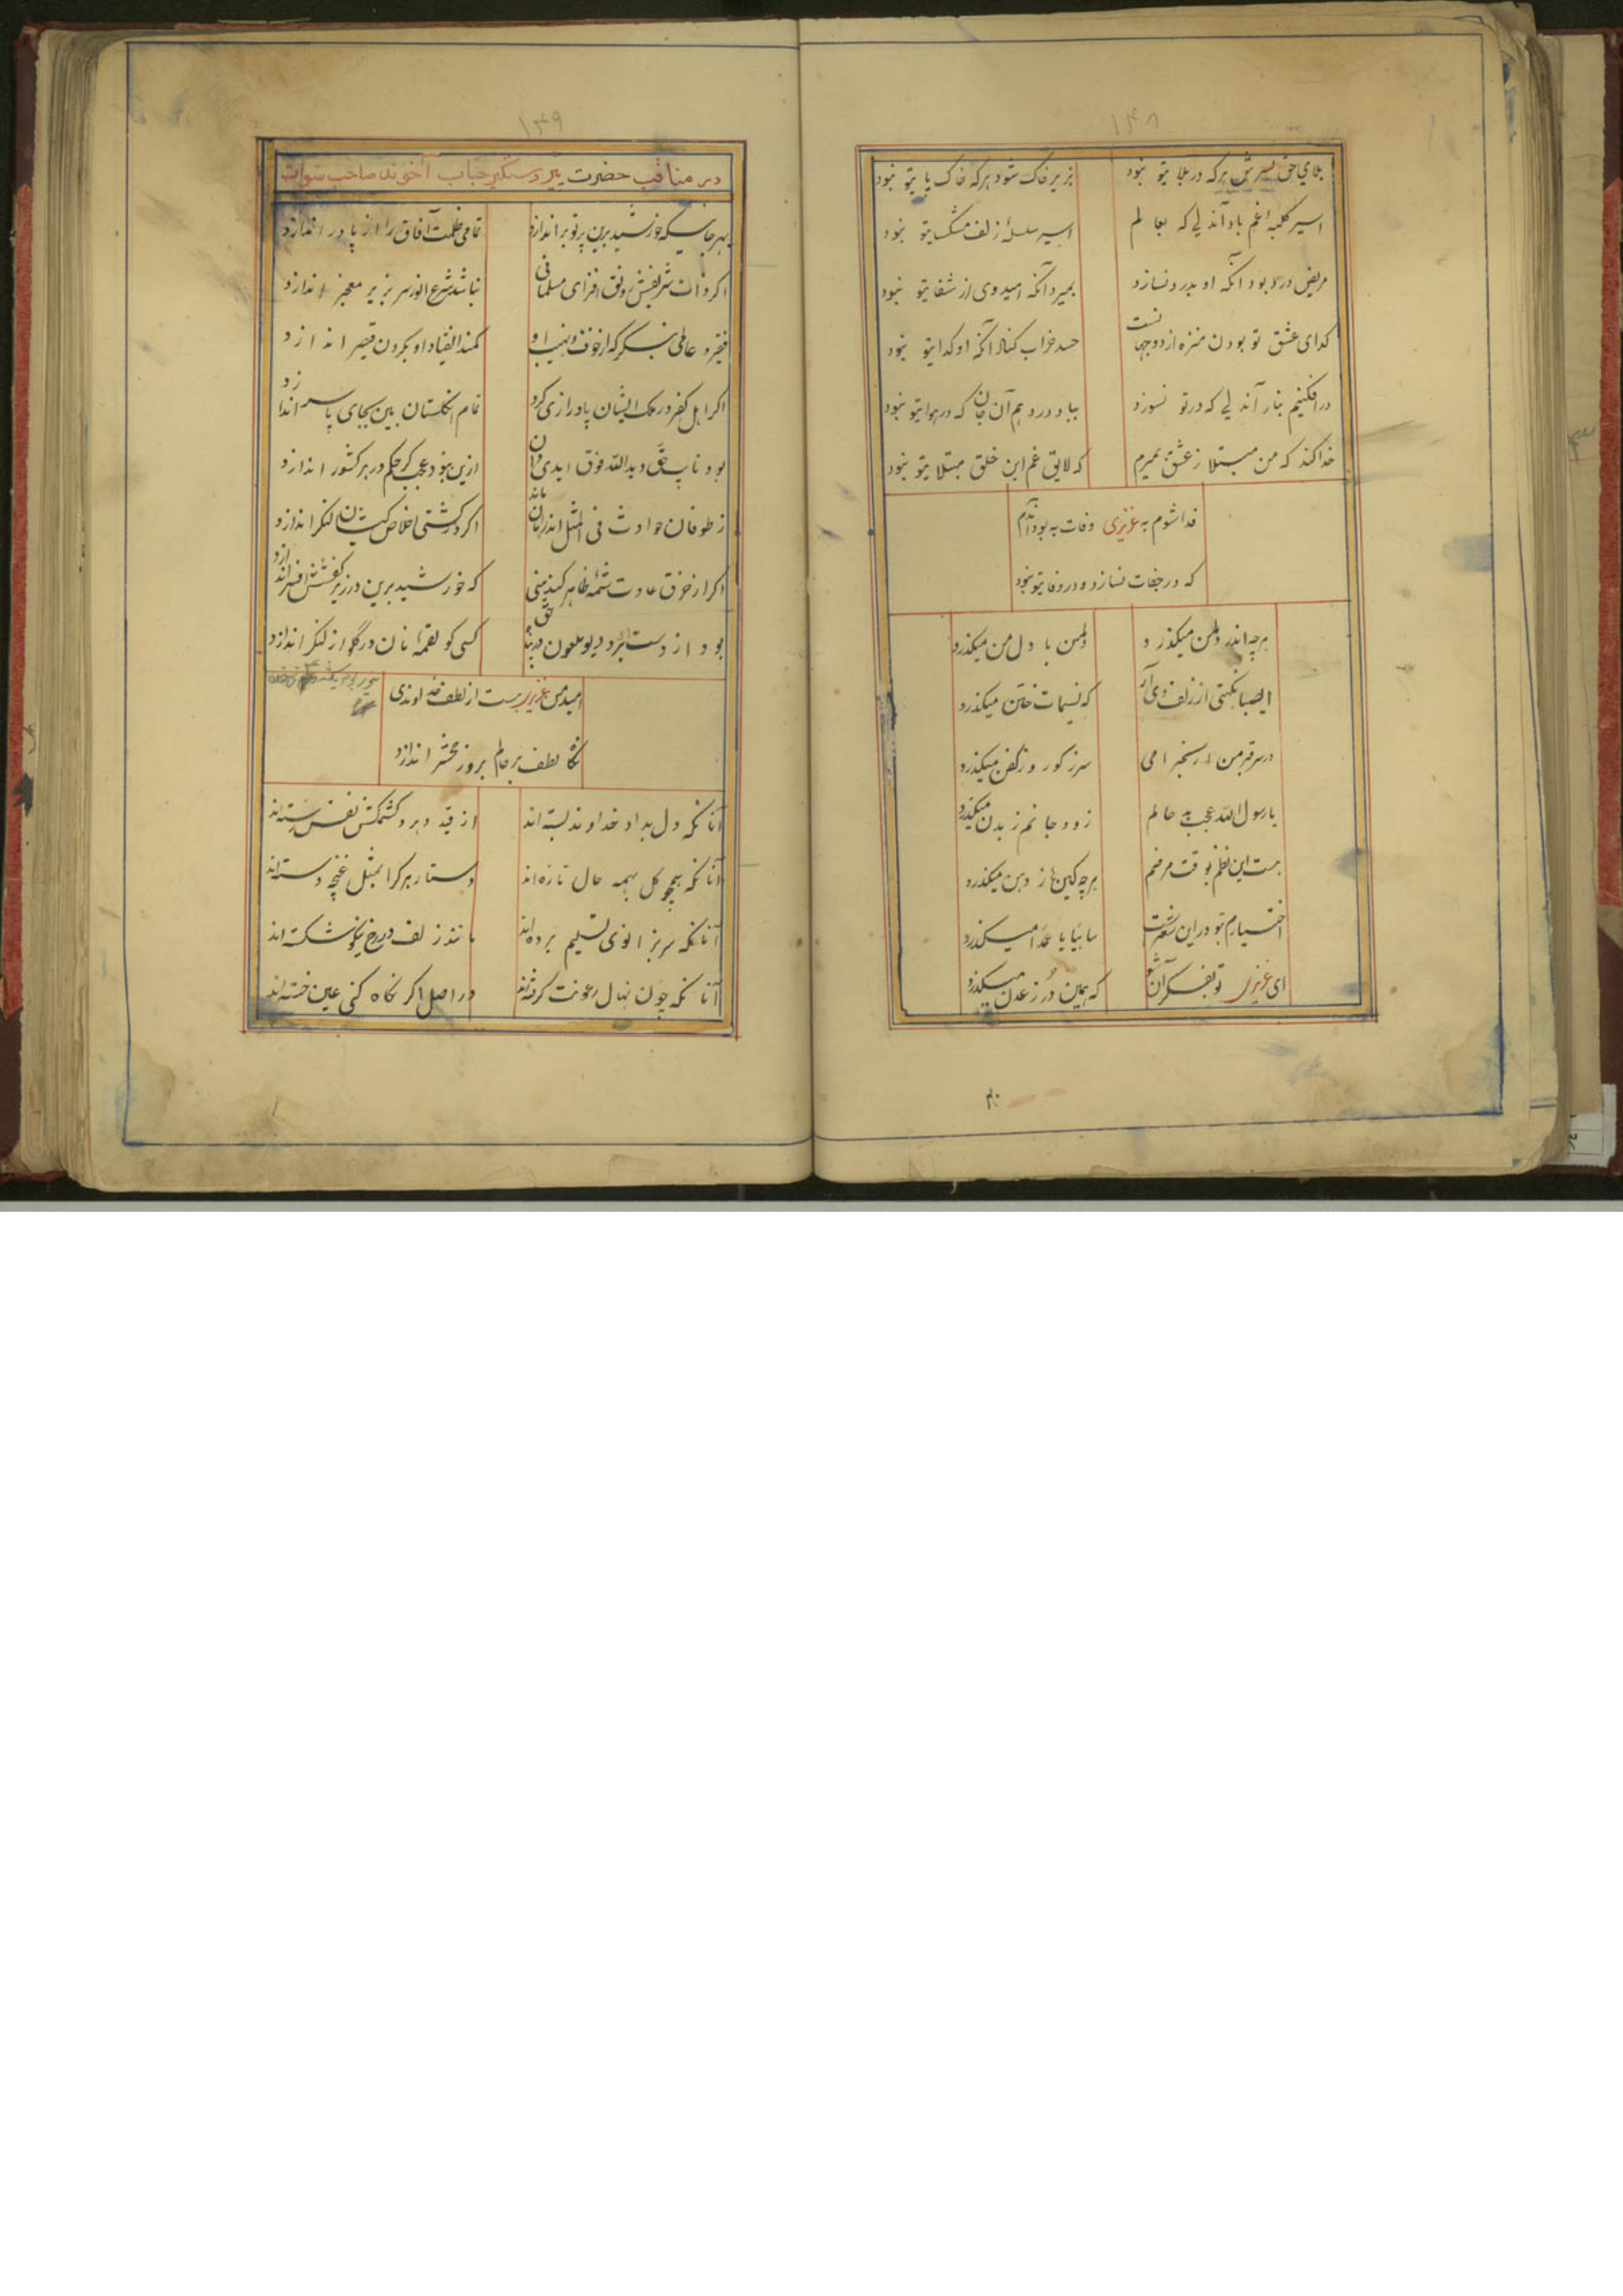 ۱۴۸
بلای حق بسرش هرکه در بلا یتو نبود
بزیر خاک شود هرکه خاک پا یتو نبود
اسیر کلبهٔ غم باد آندلی که بعالم
اسیر سلسلهٔ زلف مشکسا یتو نبود
مریض درد بود آنکه او بدرد نسازد
بمیرد آنکه امید وی از شفا یتو نبود
کدای عشق تو بودن منزه از دوجهانست
حسد خراب کناد آنکه او کدا یتو نبود
در افکنیم بنار آندلی که در تو نسوزد
بباد در دهم آن جان که در هوا یتو نبود
خدا کند که من مبتلا ز عشق بمیرم
که لایق غم این خلق مبتلا یتو نبود
فدا شوم به عزیزی وفات به بود آندم
که در جفات نسازد و در وفا یتو نبود
هرچه اندر دلمن میکذرد
دلمن با دل من میکذرد
ایصبا نکهتی از زلف وی آر
که نسیمات ختن میکذرد
در سر قبر من ار بیخبر امی
سرز کور و ز کفن میکذرد
یارسول الله عجب به حالم
زود جانم ز بدن میکذرد
هست این نظم بوقت مرضم
هرچه کین از دهن میکذرد
اختیارم تو در این شعرت
سانیا یا عمدا میکذرد
ای عزیزی تو بفکر آن شو
که همین در ز عدن میکذرد
۱۴۹
در مناقب حضرت پیر دستکیر جناب آخوند صاحب سوات
بهر جائیکه خورشید برین پرتو براندازد
تمامی ظلمت آفاق را از پا در اندازد
اکر ذات شریفش رونق افزای مسلمانی
نباشد شرع انور سر بزیر معجر اندازد
فقیر و عاملی بنکر که از خوف و نهیب او
کمند انقیاد او بکردن قیصر اندازد
اکر اهل کفر در ملک ایشان پا درازی کرد
تمام انکلستان بین بجای پا سر اندازد
بود نایب حق و یدالله فوق ایدی دان
ازین نبود عجب کر حکم در هر کشور اندازد
ز طوفان حوادث فی المثل اندر امان ماند
اکر در کشتی اخلاص کیشان لنکر اندازد
اکر از خرق عادت شمهٔ ظاهر کند بینی
که خورشید برین در زیر کفشش افسر اندازد
بود از دستبرد دیو ملعون در پناه حق
کسی کو لقمهٔ نان در کلو از لنکر اندازد
امیدمن عزیزی هست از لطف خداوندی
نکاه لطف بر حالم بروز محشر اندازد
آنانکه دل بداد خداوند بسته اند
از قید دهر و کشمکش نفس رسته اند
آنانکه همچو کل بهمه حال تازه اند
دستار هر کرا بمثل غنچه دسته اند
آنانکه سر بزانوی تسلیم برده اند
مانند زلف در رخ نیکو شکسته اند
آنانکه چون نهال رعونت کرفته اند
در اصل اکر نکاه کنی عین خسته اند